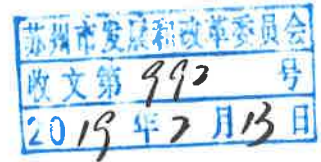 苏州市发展和改革委员会
收文第 992 号
2019 年 2 月 13 日